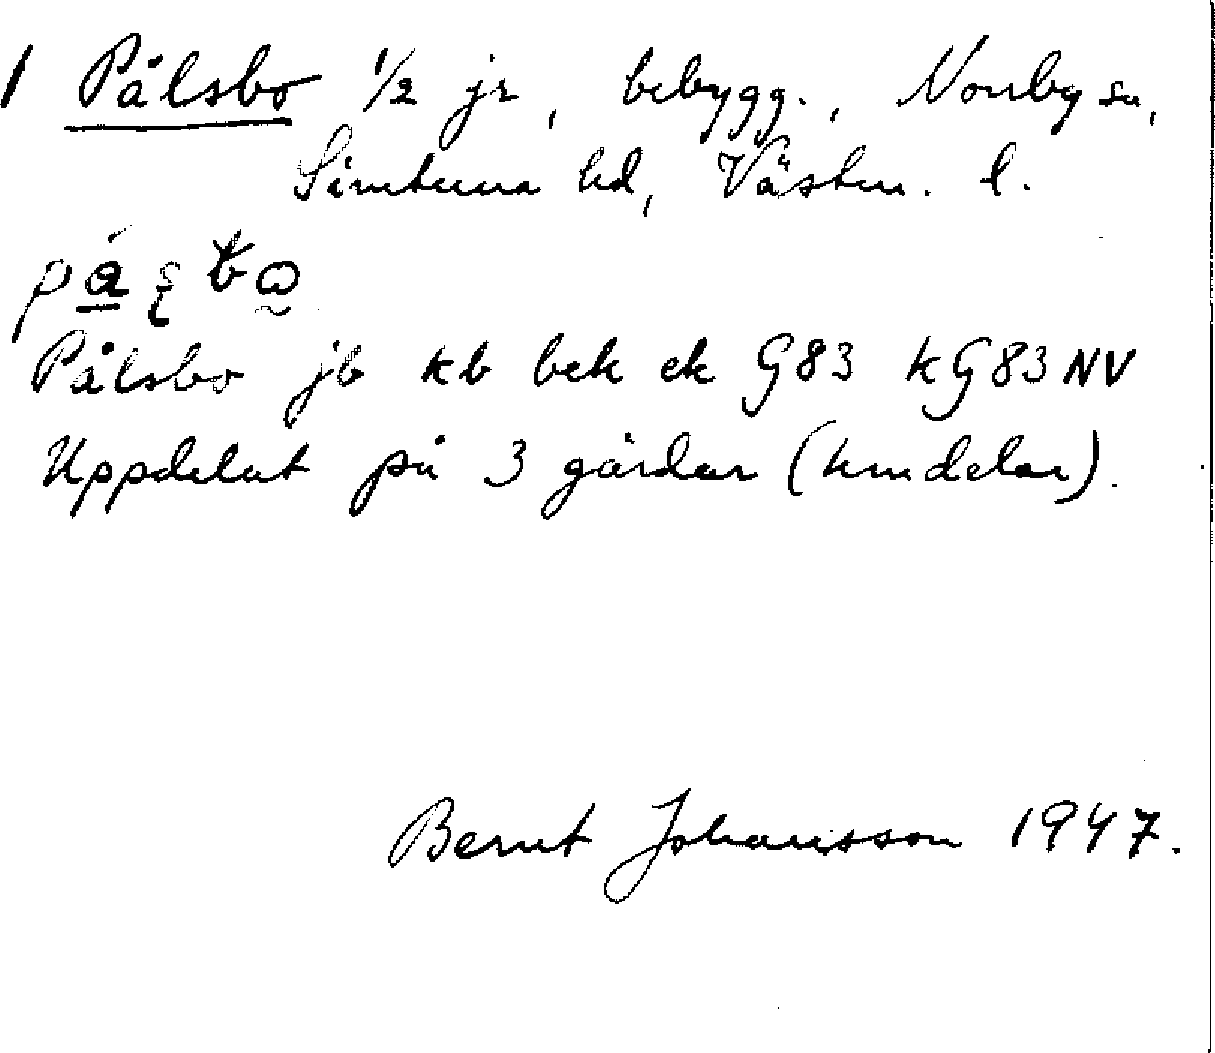 1 Pålsbo 1/2 jr, bebygg., Norrby sn,
Simtuna hd, Västm. l.
Pålsbo jb kb bek ek G83 kG83NV
Uppdelat på 3 gårdar (hmdelar).
Bernt Johansson 1947.